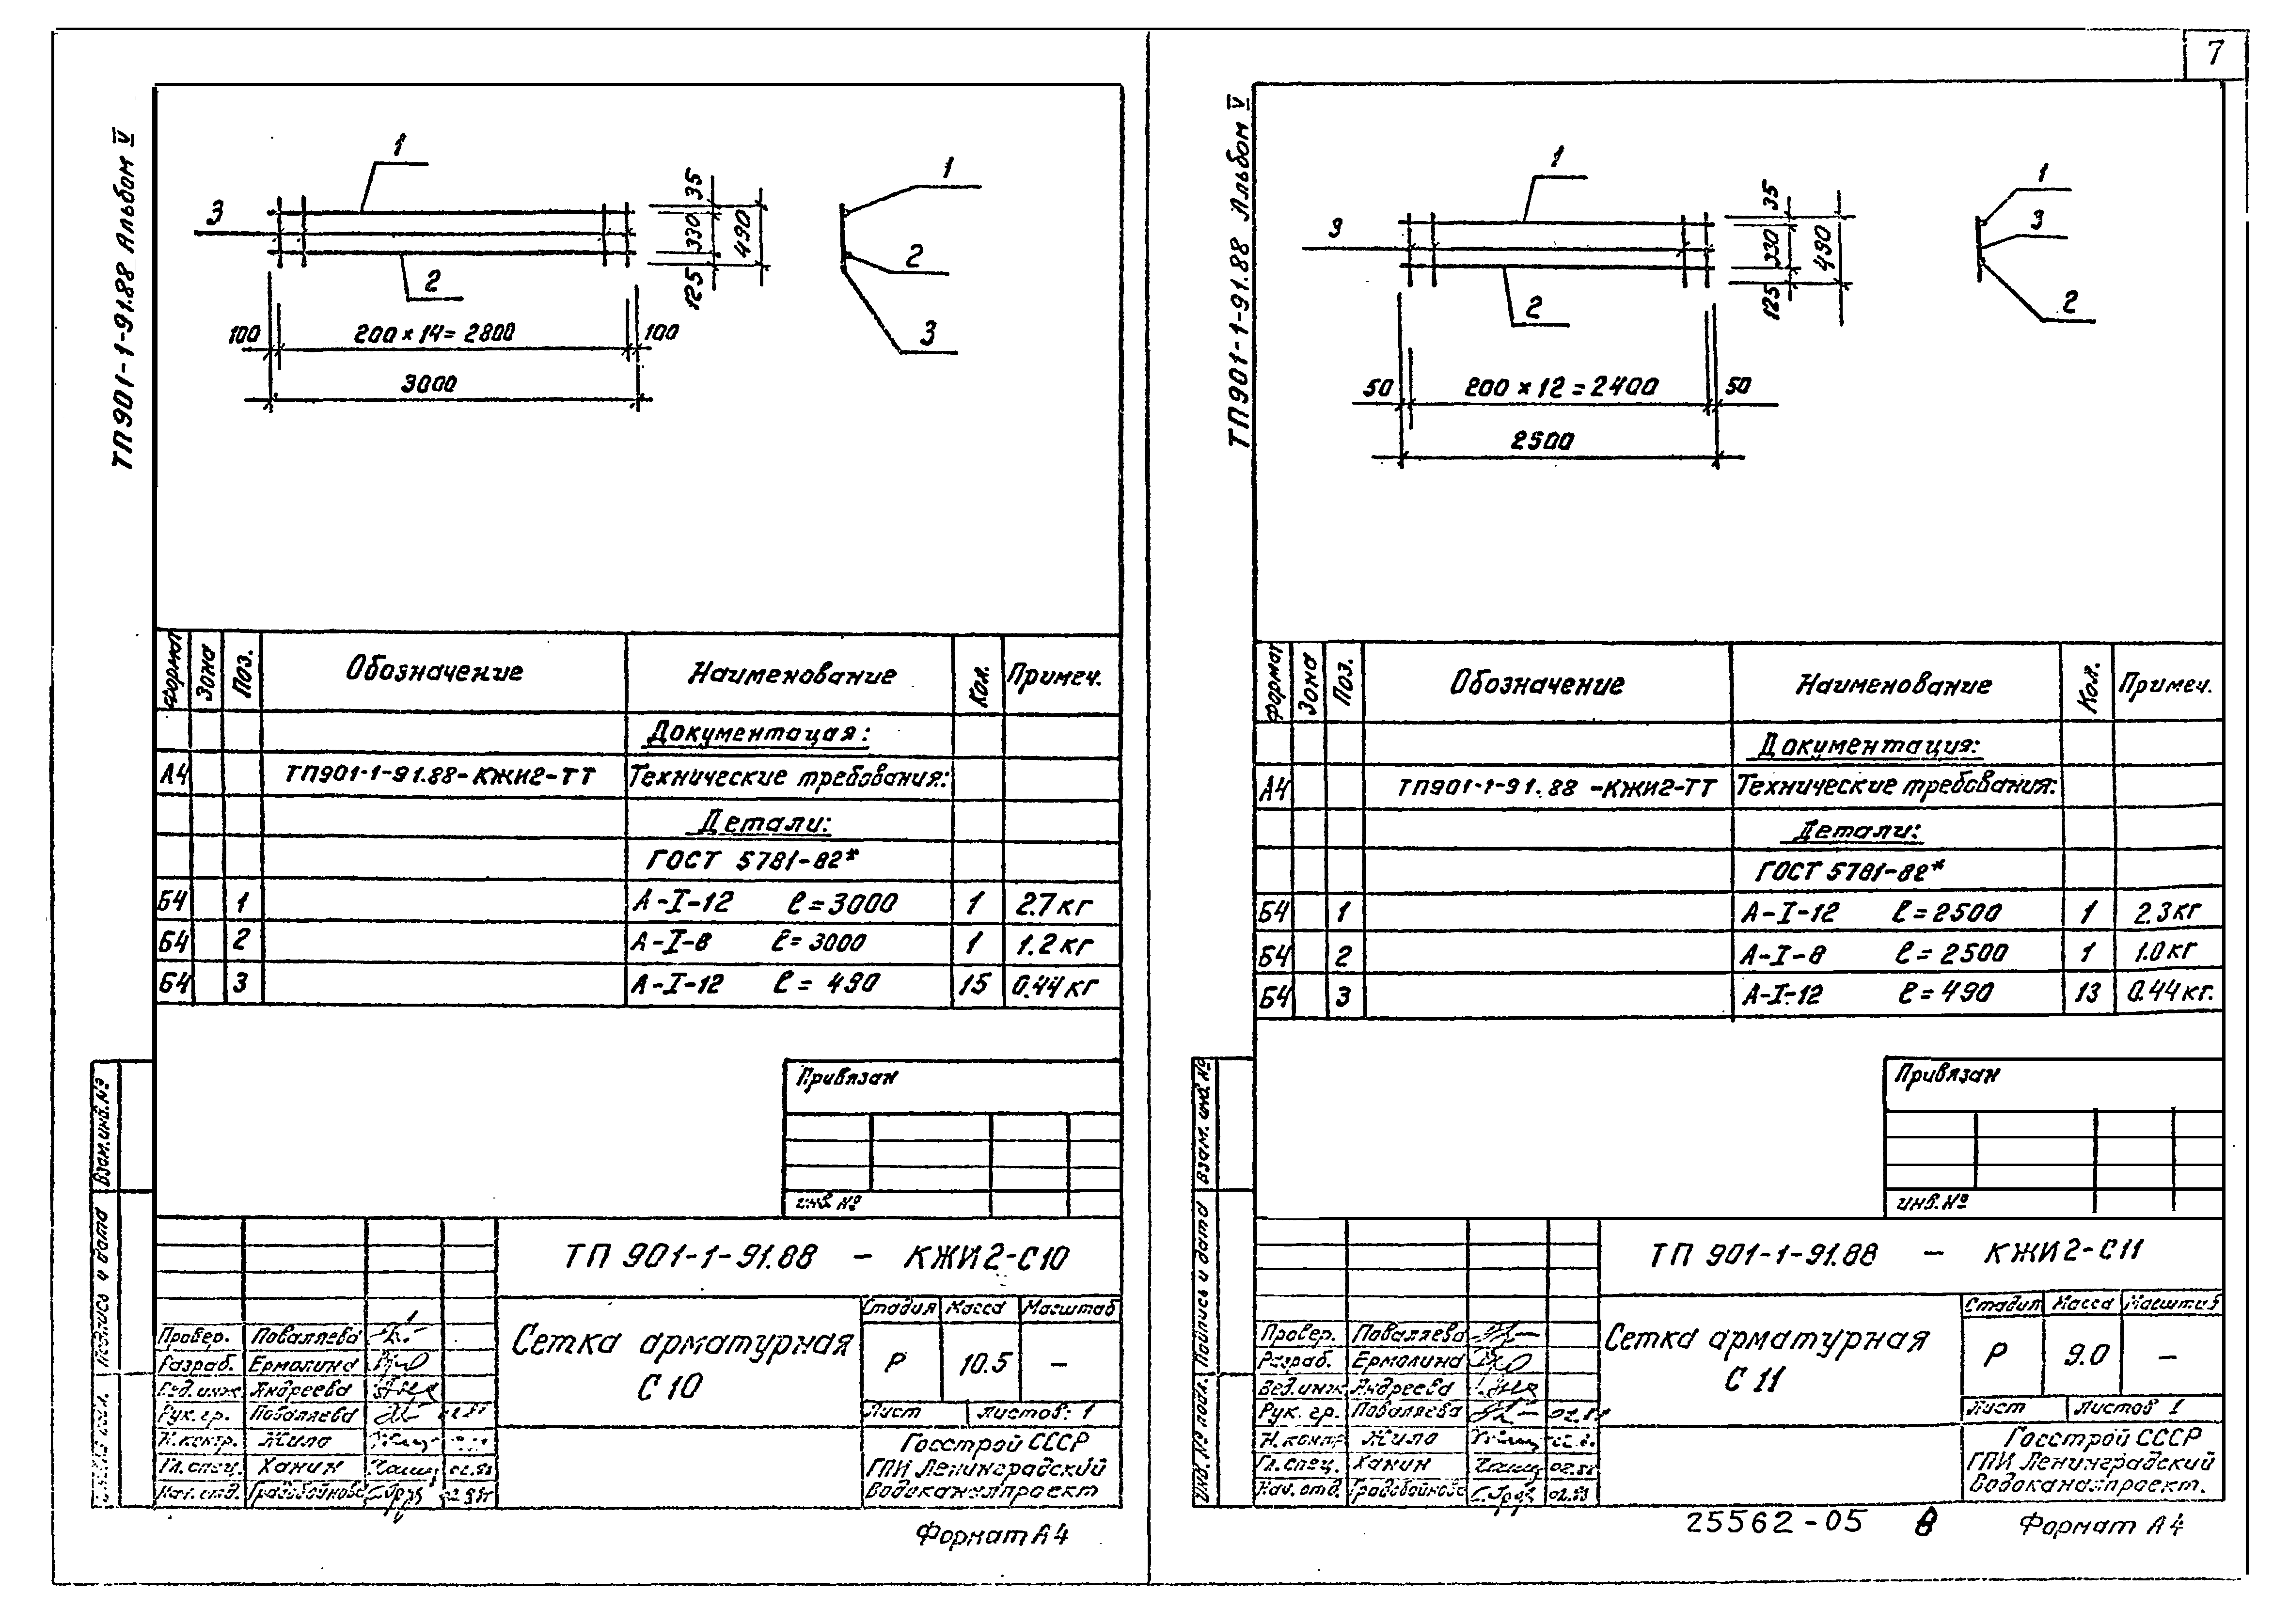 7
ТП901-1-91.88 Альбом V
1
3
2
35
330
125
490
100
200 × 14 = 2800
100
3000
1
2
3
Формат Зона Поз. Обозначение Наименование Кол. Примеч.
Документация:
А4 ТП901-1-91.88-КЖИ2-ТТ Технические требования:
Детали:
ГОСТ 5781-82*
Б4 1 А-I-12 ℓ=3000 1 2.7 кг
Б4 2 А-I-8 ℓ=3000 1 1.2 кг
Б4 3 А-I-12 ℓ= 490 15 0.44 кг
Привязан
инв. №
Взам. инв. №
Подпись и дата
ТП 901-1-91.88 - КЖИ2-С10
Стадия Масса Масштаб
Сетка арматурная
С 10
Р 10.5 —
Лист Листов: 1
Госстрой СССР
ГПИ Ленинградский
Водоканалпроект
Провер. Поваляева
Разраб. Ермолина
Вед. инж Андреева
Рук. гр. Поваляева 02.88
Н. контр. Жила
Гл. спец. Ханин 02.88
Нач. отд. Градобойнова 02.88
Формат А4
ТП901-1-91.88 Альбом V
1
3
2
35
330
125
490
50
200 × 12 = 2400
50
2500
1
3
2
Формат Зона Поз. Обозначение Наименование Кол. Примеч.
Документация:
А4 ТП901-1-91.88 -КЖИ2-ТТ Технические требования:
Детали:
ГОСТ 5781-82*
Б4 1 А-I-12 ℓ=2500 1 2.3 кг
Б4 2 А-I-8 ℓ=2500 1 1.0 кг
Б4 3 А-I-12 ℓ=490 13 0.44 кг.
Привязан
инв. №
Взам. инв. №
Подпись и дата
Инв. № подл.
ТП 901-1-91.88 - КЖИ2-С11
Стадия Масса Масштаб
Сетка арматурная
С 11
Р 9.0 —
Лист Листов 1
Госстрой СССР
ГПИ Ленинградский
Водоканалпроект.
Провер. Поваляева
Разраб. Ермолина
Вед. инж Андреева
Рук. гр. Поваляева 02.88
Н. контр Жила
Гл. спец. Ханин 02.88
Нач. отд. Градобойнова 02.88
25562-05 8 Формат А4